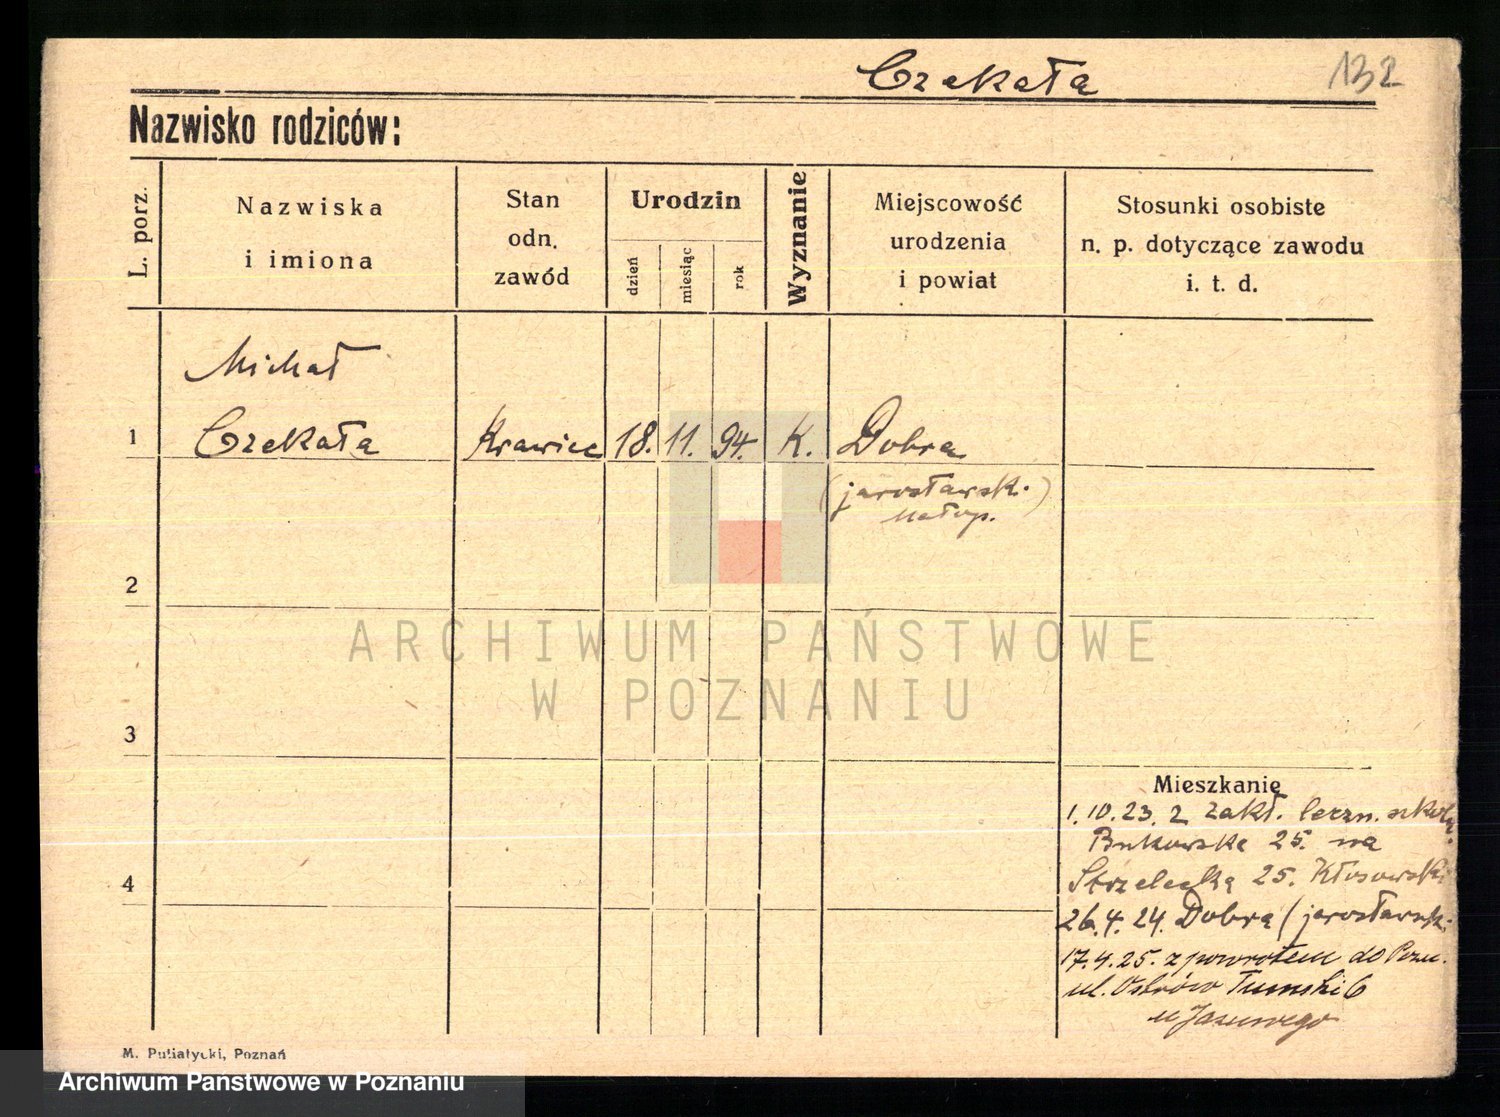 Czekała
132
Nazwisko rodziców:
L. porz.
Nazwiska
i imiona
Stan
odn.
zawód
Urodzin
dzień
miesiąc
rok
Wyznanie
Miejscowość
urodzenia
i powiat
Stosunki osobiste
n. p. dotyczące zawodu
i. t. d.
Michał
1 Czekała Krawiec 18. 11. 94. K. Dobra
(jarosławsk.)
Małop.
2
ARCHIWUM PAŃSTWOWE
W POZNANIU
3
Mieszkanie
1.10.23. z zakł. leczn.
Bukowska 25. na
4
Strzelecką 25. Kłosowski
26.4.24. Dobra (jarosławsk.
17.4.25. z powrotem do Pozn.
ul. Ostrów Tumski 6
u
M. Putiatycki, Poznań
Archiwum Państwowe w Poznaniu